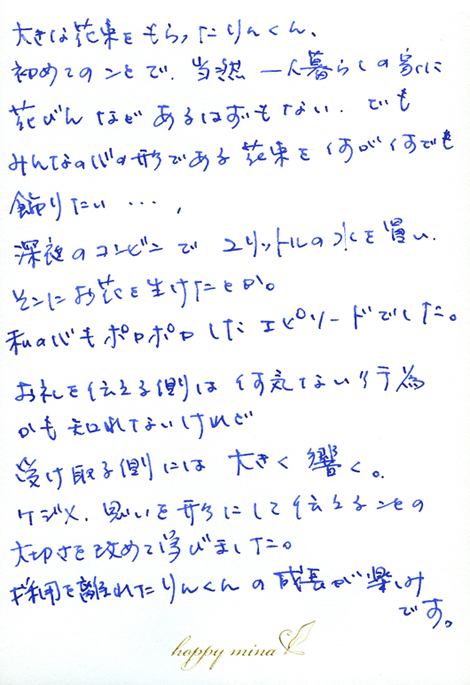 大きな花束をもらったりんくん、
初めてのことで、当然 一人暮らしの家に
花びんなど あるはずもない、でも
みんなの心の形である 花束を 何が何でも
飾りたい・・・、
深夜のコンビニで 2リットルの水を買い、
そこにお花を生けたとか。
私の心もポロポロしたエピソードでした。
お礼を伝える側は 何気ない行為
かも知れてないけれど
受け取る側には 大きく響く。
ケジメ、思いを形にして伝えることの
大切さを改めて学びました。
採用を離れたりんくんの成長が楽しみ
です。
happy mina